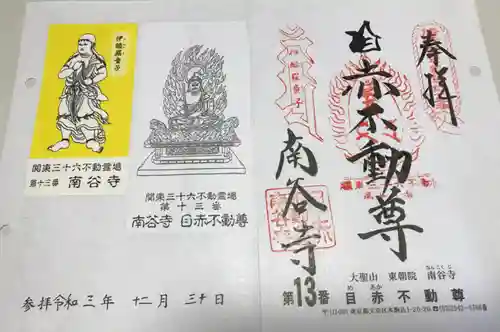 伊醯羅童子
関東三十六不動霊場
第十三番 南谷寺
関東三十六不動霊場
第十三番
南谷寺 目赤不動尊
参拝令和三年 十二月 三十日
奉拝
目赤不動尊
伊醯羅童子
南谷寺
大聖山 東朝院 南谷寺
なんこくじ
第13番 目赤不動尊
め あか